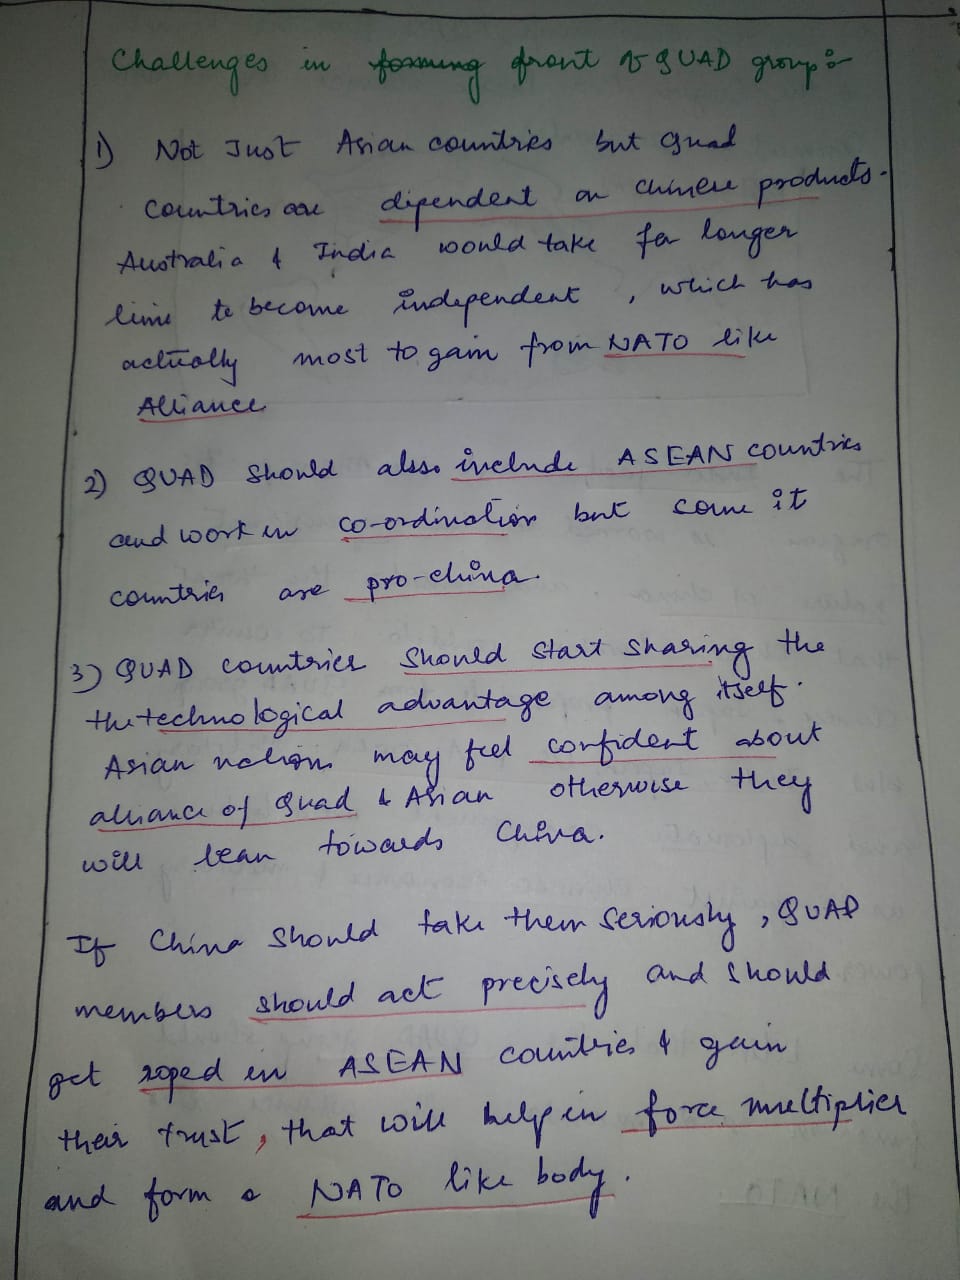 Challenges in forming front of QUAD group :-
1) Not Just Asian countries but Quad
countries are dipendent on chinese products.
Australia & India would take far longer
time to become independent , which has
actually most to gain from NATO like
Alliance
2) QUAD should also include ASEAN countries
and work in co-ordination but some it
countries are pro-china.
3) QUAD countries should start sharing the
the technological advantage among itself.
Asian nations may feel confident about
alliance of Quad & Asian otherwise they
will lean towards China.
If China should take them seriously , QUAD
members should act precisely and should
get roped in ASEAN countries & gain
their trust, that will help in force multiplier
and form a NATO like body.